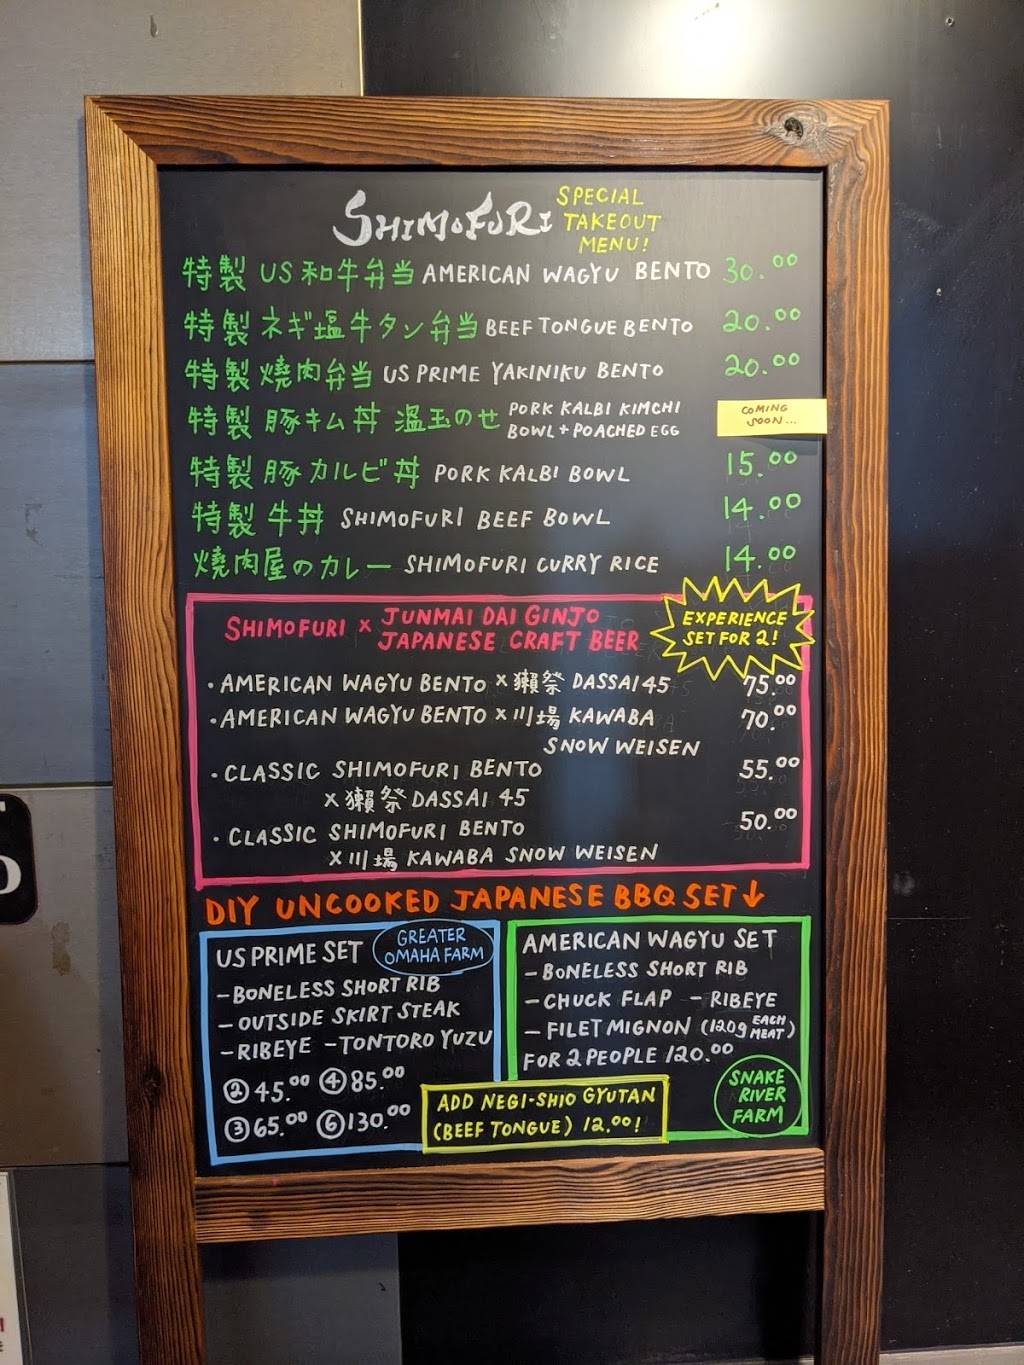 SHIMOFURI SPECIAL
TAKEOUT
MENU!
特製 US和牛弁当 AMERICAN WAGYU BENTO 30.00
特製 ネギ塩牛タン弁当 BEEF TONGUE BENTO 20.00
特製 焼肉弁当 US PRIME YAKINIKU BENTO 20.00
特製 豚キム丼 温玉のせ PORK KALBI KIMCHI
BOWL + POACHED EGG
COMING
SOON...
特製 豚カルビ丼 PORK KALBI BOWL 15.00
特製 牛丼 SHIMOFURI BEEF BOWL 14.00
焼肉屋のカレー SHIMOFURI CURRY RICE 14.00
SHIMOFURI x JUNMAI DAI GINJO
JAPANESE CRAFT BEER
EXPERIENCE
SET FOR 2!
・AMERICAN WAGYU BENTO x 獺祭 DASSAI 45 75.00
・AMERICAN WAGYU BENTO x 川場 KAWABA 70.00
SNOW WEISEN
・CLASSIC SHIMOFURI BENTO 55.00
x 獺祭 DASSAI 45
・CLASSIC SHIMOFURI BENTO 50.00
x 川場 KAWABA SNOW WEISEN
DIY UNCOOKED JAPANESE BBQ SET↓
US PRIME SET GREATER
OMAHA FARM
-BONELESS SHORT RIB
-OUTSIDE SKIRT STEAK
-RIBEYE -TONTORO YUZU
② 45.00 ④ 85.00
③ 65.00 ⑥ 130.00
AMERICAN WAGYU SET
-BONELESS SHORT RIB
-CHUCK FLAP -RIBEYE
-FILET MIGNON (120g EACH MEAT)
FOR 2 PEOPLE 120.00
SNAKE
RIVER
FARM
ADD NEGI-SHIO GYUTAN
(BEEF TONGUE) 12.00!